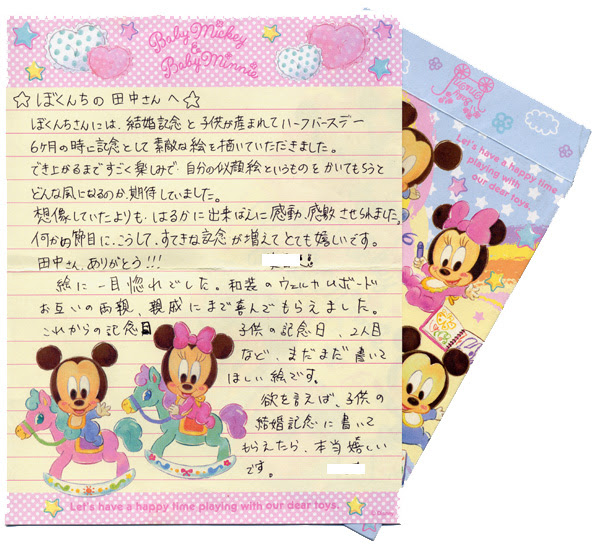 Baby Mickey
&
Baby Minnie
☆ぼくんちの 田中さんへ☆
ぼくんちさんには、結婚記念と子供が産まれてハーフバースデー
6ヶ月の時に記念として素敵な絵を描いていただきました。
でき上がるまですごく楽しみで、自分の似顔絵というものをかいてもらうと
どんな風になるのか、期待していました。
想像していたよりも、はるかに出来ばえに感動、感激させられました。
何かの節目に、こうして、すてきな記念が増えてとても嬉しいです。
田中さん、ありがとう!!!
絵に一目惚れでした。和装のウェルカムボード
お互いの両親、親戚にまで喜んでもらえました。
これからの記念日 子供の記念日、2人目
など、まだまだ書いて
ほしい絵です。
欲を言えば、子供の
結婚記念に書いて
もらえたら、本当嬉しい
です。
Let's have a happy time playing with our dear toys.
Let's have a happy time
playing with
our dear toys.